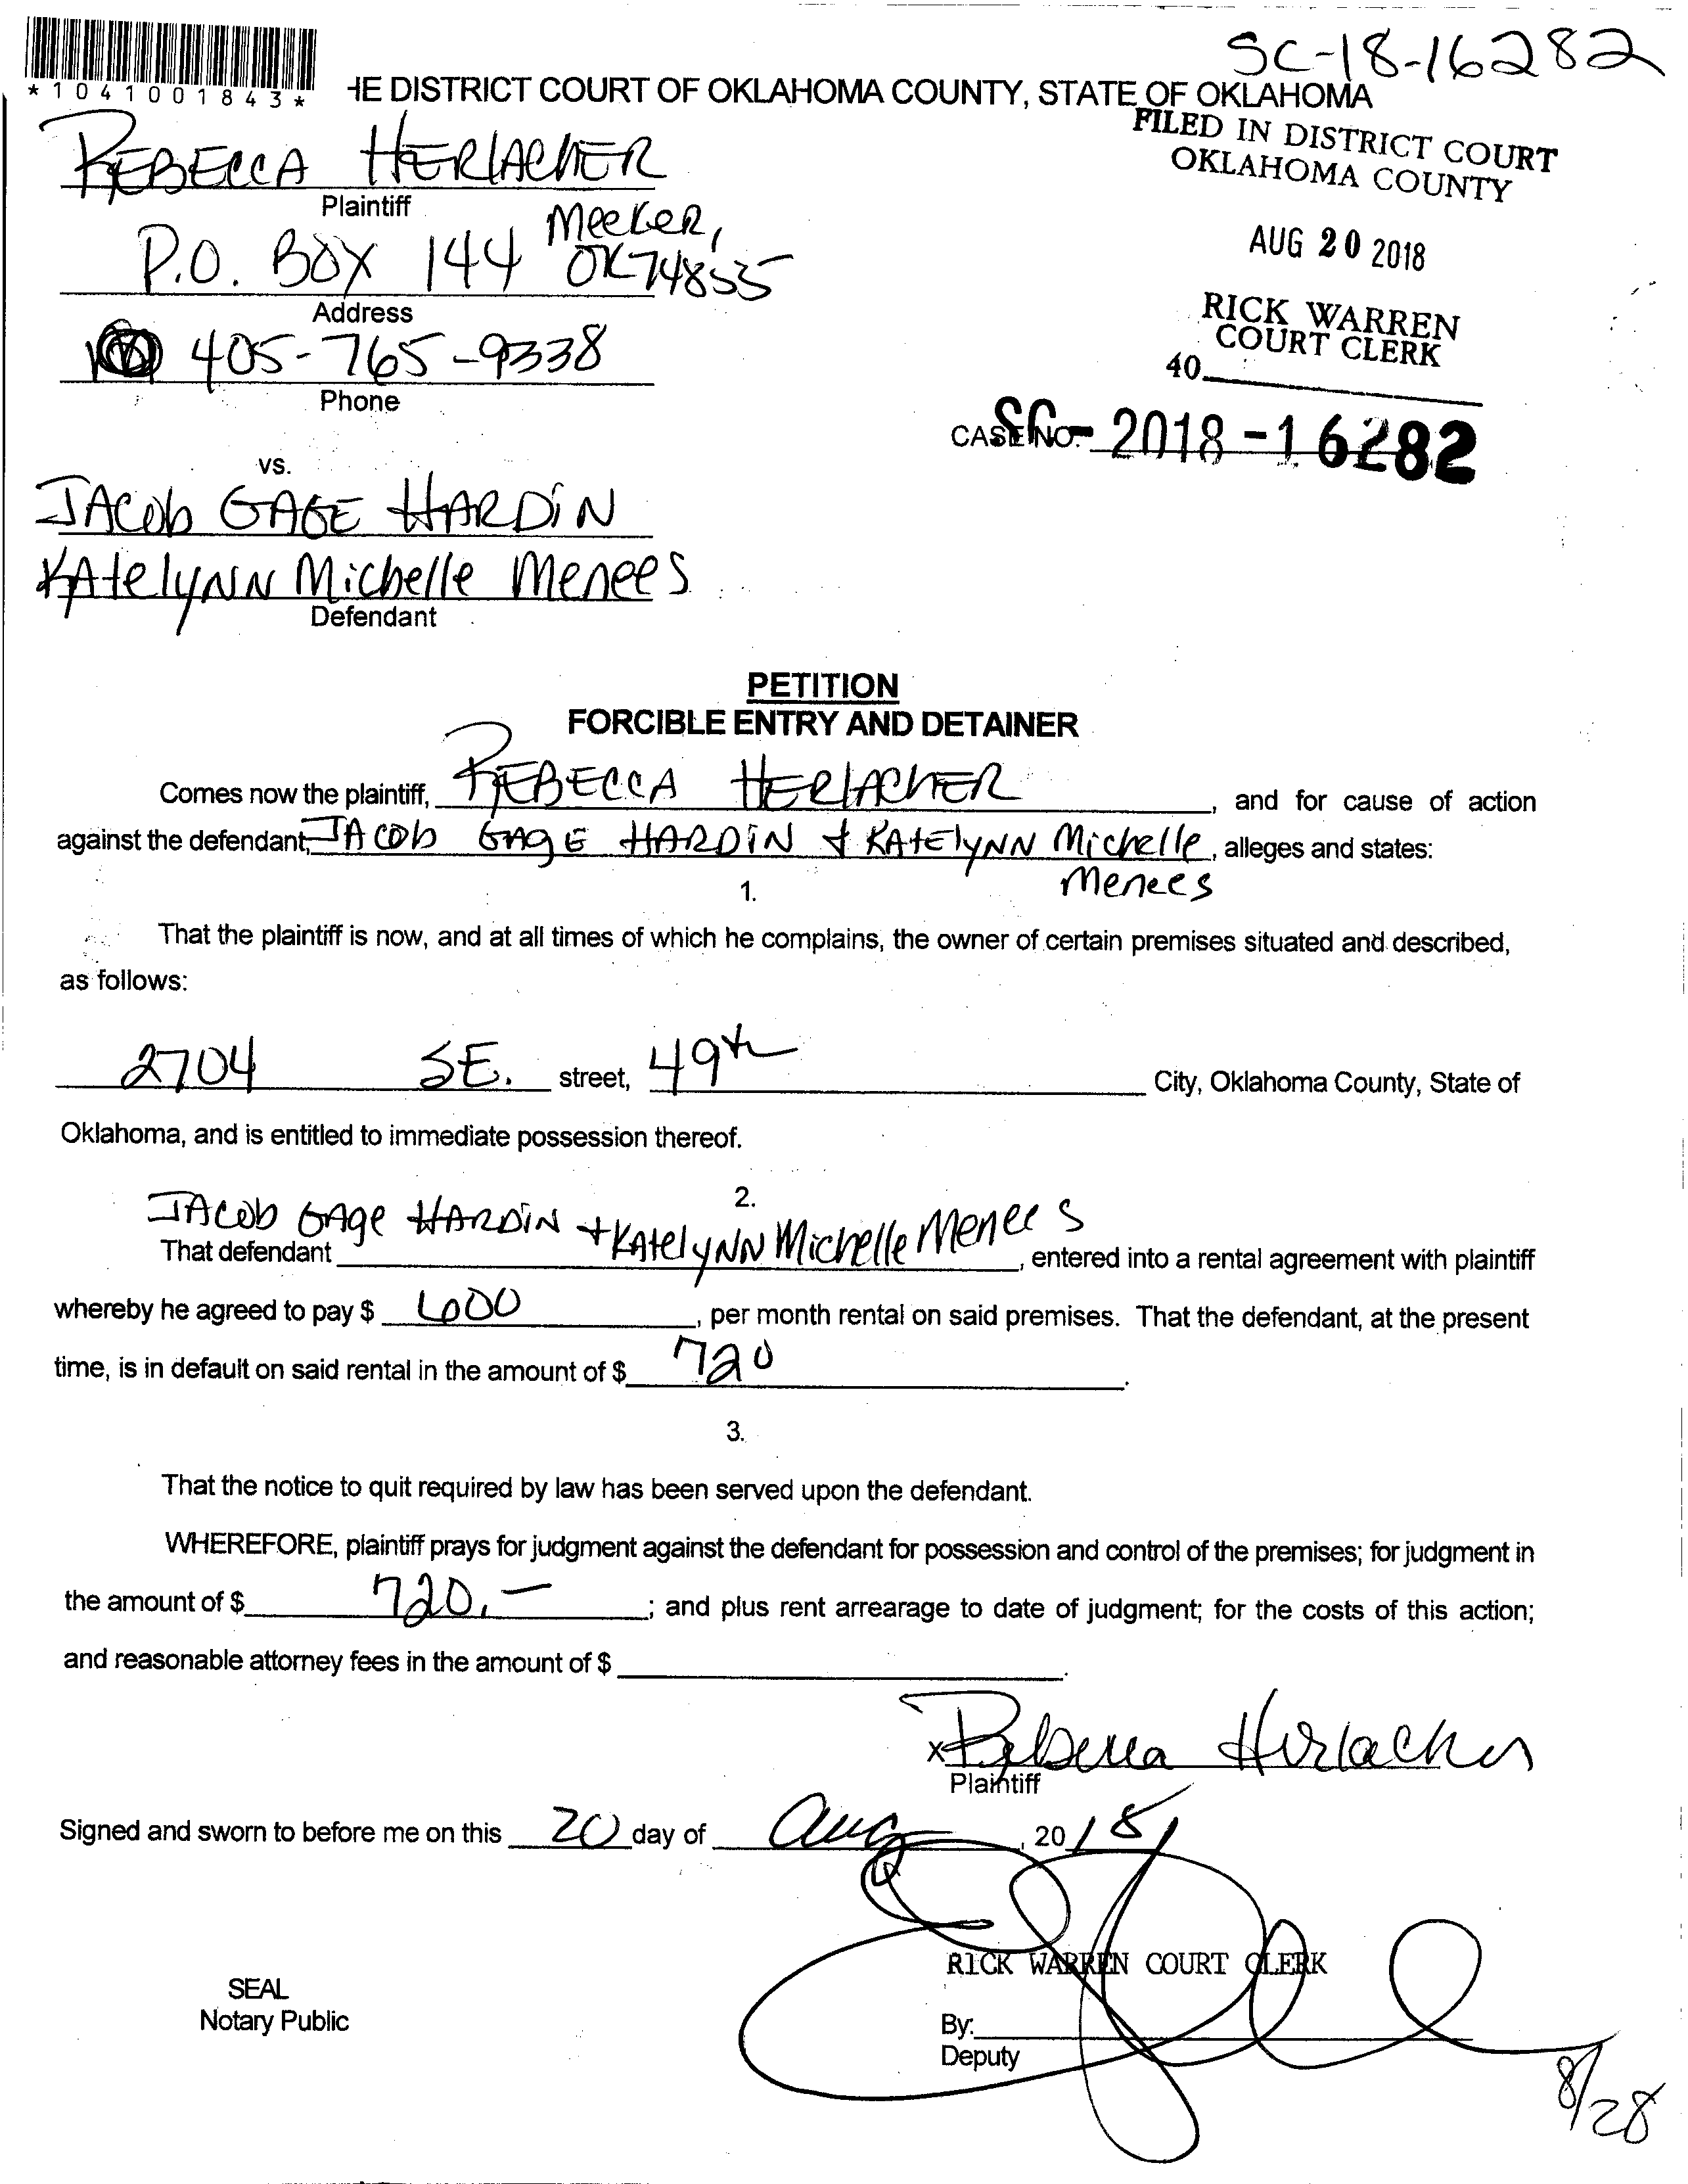 SC-18-16282
*1041001843*
HE DISTRICT COURT OF OKLAHOMA COUNTY, STATE OF OKLAHOMA
FILED IN DISTRICT COURT
OKLAHOMA COUNTY
REBECCA HERLACHER
Plaintiff
P.O. BOX 144 Meeker,
OK 74855
Address
AUG 20 2018
RICK WARREN
COURT CLERK
40
405-765-9338
Phone
CASE NO. SC-2018-16282
vs.
JACOb GAGE HARDiN
KAtelyNN Michelle Menees
Defendant
PETITION
FORCIBLE ENTRY AND DETAINER
Comes now the plaintiff, REBECCA HERlACHER, and for cause of action
against the defendant, JACOb GAgE HARDiN + KAtElyNN Michelle, alleges and states:
Menees
1.
That the plaintiff is now, and at all times of which he complains, the owner of certain premises situated and described,
as follows:
2704 SE. street, 49th City, Oklahoma County, State of
Oklahoma, and is entitled to immediate possession thereof.
2.
JACOb GAge HARDiN + KAtelyNN Michelle Menees
That defendant , entered into a rental agreement with plaintiff
whereby he agreed to pay $ 600, per month rental on said premises. That the defendant, at the present
time, is in default on said rental in the amount of $ 720.
3.
That the notice to quit required by law has been served upon the defendant.
WHEREFORE, plaintiff prays for judgment against the defendant for possession and control of the premises; for judgment in
the amount of $ 720.-; and plus rent arrearage to date of judgment; for the costs of this action;
and reasonable attorney fees in the amount of $ .
x Rebecca Herlacher
Plaintiff
Signed and sworn to before me on this 20 day of Aug, 2018
RICK WARREN COURT CLERK
SEAL
Notary Public
By:
Deputy
8/28